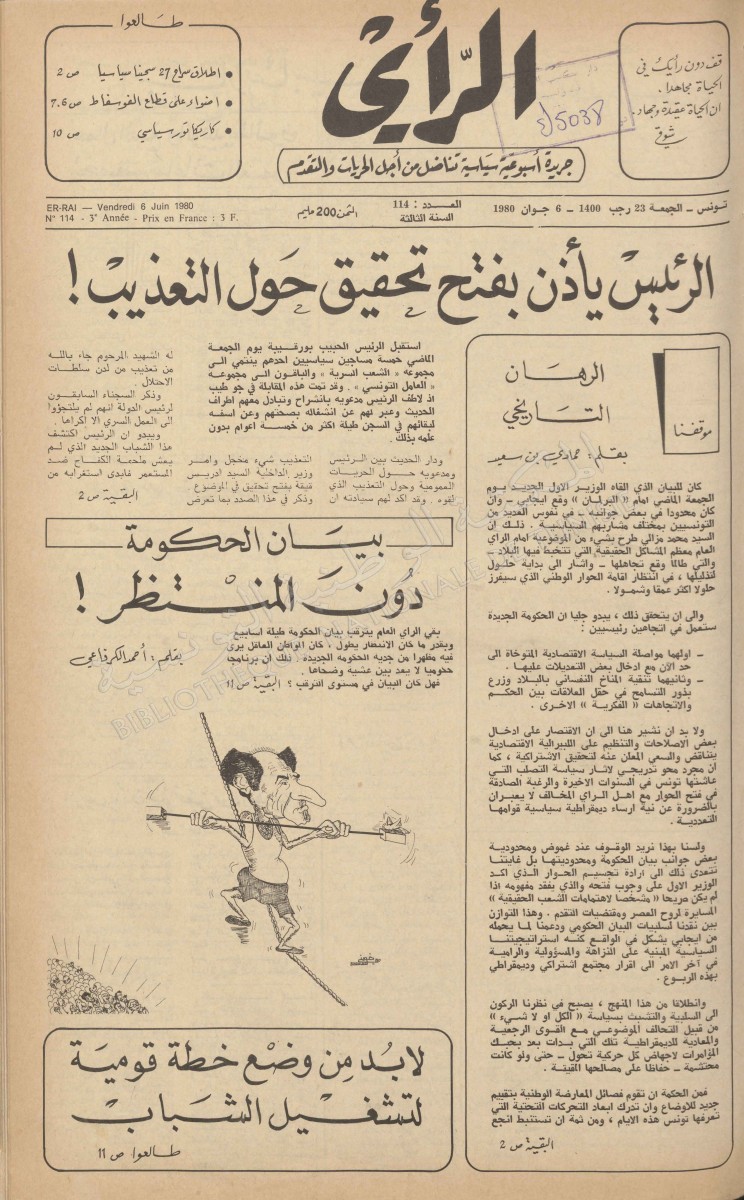 قف دون رأيك في
الحياة مجاهدا .
ان الحياة عقيدة وجهاد .
شوقي
الرأي
جريدة أسبوعية سياسية تناضل من أجل الحريات والتقدم
5038
طالعوا
اطلاق سراح 27 سجينا سياسيا ص 2
اضواء على قطاع الفوسفاط ص 7.6
كاريكاتور سياسي ص 10
تونس – الجمعة 23 رجب 1400 – 6 جوان 1980
العدد : 114
السنة الثالثة
الثمن 200 مليم
ER-RAI — Vendredi 6 Juin 1980
N° 114 - 3e Année - Prix en France : 3 F.
الرئيس يأذن بفتح تحقيق حول التعذيب !
موقفنا
الرهان
التاريخي
بقلم : حمادي بن سعيد
كان للبيان الذي القاه الوزير الاول الجديد يوم
الجمعة الماضي امام « البرلمان » وقع ايجابي – وان
كان محدودا في بعض جوانبه – في نفوس العديد من
التونسيين بمختلف مشاربهم السياسية . ذلك ان
السيد محمد مزالي طرح بشيء من الموضوعية امام الراي
العام معظم المشاكل الحقيقية التي تتخبط فيها البلاد –
والتي طالما وقع تجاهلها – واشار الى بداية حلول
لتذليلها ، في انتظار اقامة الحوار الوطني الذي سيفرز
حلولا اكثر عمقا وشمولا .
والى ان يتحقق ذلك ، يبدو جليا ان الحكومة الجديدة
ستعمل في اتجاهين رئيسيين :
– اولهما مواصلة السياسة الاقتصادية المتوخاة الى
حد الآن مع ادخال بعض التعديلات عليها .
– وثانيهما تنقية المناخ النفساني بالبلاد وزرع
بذور التسامح في حقل العلاقات بين الحكم
والاتجاهات « الفكرية » الاخرى .
ولا بد ان نشير هنا الى ان الاقتصار على ادخال
بعض الاصلاحات والتنظيم على الليبرالية الاقتصادية
يتناقض والسعي المعلن عنه لتحقيق الاشتراكية ، كما
ان مجرد محو تدريجي لاثار سياسة التصلب التي
عاشتها تونس في السنوات الاخيرة والرغبة الصادقة
في فتح الحوار مع اهل الراي المخالف لا يعبران
بالضرورة عن نية ارساء ديمقراطية سياسية قوامها
التعددية .
ولسنا بهذا نريد الوقوف عند غموض ومحدودية
بعض جوانب بيان الحكومة ومحدوديتها بل غايتنا
تتعدى ذلك الى ارادة تجسيم الحوار الذي اكد
الوزير الاول على وجوب فتحه والذي يفقد مفهومه اذا
لم يكن صريحا « مشخصا لاهتمامات الشعب الحقيقية »
المسايرة لروح العصر ومقتضيات التقدم . وهذا التوازن
بين نقدنا لسلبيات البيان الحكومي ودعمنا لما يحمله
من ايجابي يشكل في الواقع كنه استراتيجيتنا
السياسية المبنية على النزاهة والمسؤولية والرامية
في آخر الامر الى اقرار مجتمع اشتراكي وديمقراطي
بهذه الربوع .
وانطلاقا من هذا المنهج ، يصبح في نظرنا الركون
الى السلبية والتشبث بسياسة « الكل او لا شيء »
من قبيل التحالف الموضوعي مع القوى الرجعية
والمعادية للديمقراطية تلك التي بدات بعد بحبك
المؤامرات لاجهاض كل حركية تحول – حتى ولو كانت
محتشمة – حفاظا على مصالحها المقيتة .
فمن الحكمة ان تقوم فصائل المعارضة الوطنية بتقييم
جديد للاوضاع وان تدرك ابعاد التحركات التحتية التي
تعرفها تونس هذه الايام ، ومن ثمة ان تستنبط انجع
البقية ص 2
استقبل الرئيس الحبيب بورقيبة يوم الجمعة
الماضي خمسة مساجين سياسيين احدهم ينتمي الى
مجموعة « الشعب السرية » والباقون الى مجموعة
« العامل التونسي » . وقد تمت هذه المقابلة في جو طيب
اذ لاطف الرئيس مدعويه بانشراح وتبادل معهم اطراف
الحديث وعبر لهم عن انشغاله بصحتهم وعن اسفه
لبقائهم في السجن طيلة اكثر من خمسة اعوام بدون
علمه بذلك .
ودار الحديث بين الرئيس
ومدعويه حول الحريات
العمومية وحول التعذيب الذي
لقوه . وقد اكد لهم سيادته ان
التعذيب شيء مخجل وامر
وزير الداخلية السيد ادريس
قيقة بفتح تحقيق في الموضوع .
وذكر في هذا الصدد بما تعرض
له الشهيد المرحوم جاء بالله
من تعذيب من لدن سلطات
الاحتلال .
وذكر السجناء السابقون
لرئيس الدولة انهم لم يلتجؤوا
الى العمل السري الا اكراها .
ويبدو ان الرئيس اكتشف
هذا الشباب الجديد الذي لم
يعش ملحمة الكفاح ضد
المستعمر فابدى استغرابه من
البقية ص 2
بيان الحكومة
دون المنتظر !
بقلم : أحمد الكرفاعي
بقي الراي العام يترقب بيان الحكومة طيلة اسابيع
وبقدر ما كان الانتظار يطول ، كان المواطن العاقل يرى
فيه مظهرا من جدية الحكومة الجديدة . ذلك ان برنامجا
حكوميا لا يعد بين عشية وضحاها .
فهل كان البيان في مستوى الترقب ؟ البقية ص 11
لابد من وضع خطة قومية
لتشغيل الشباب
طالعوا ص 11